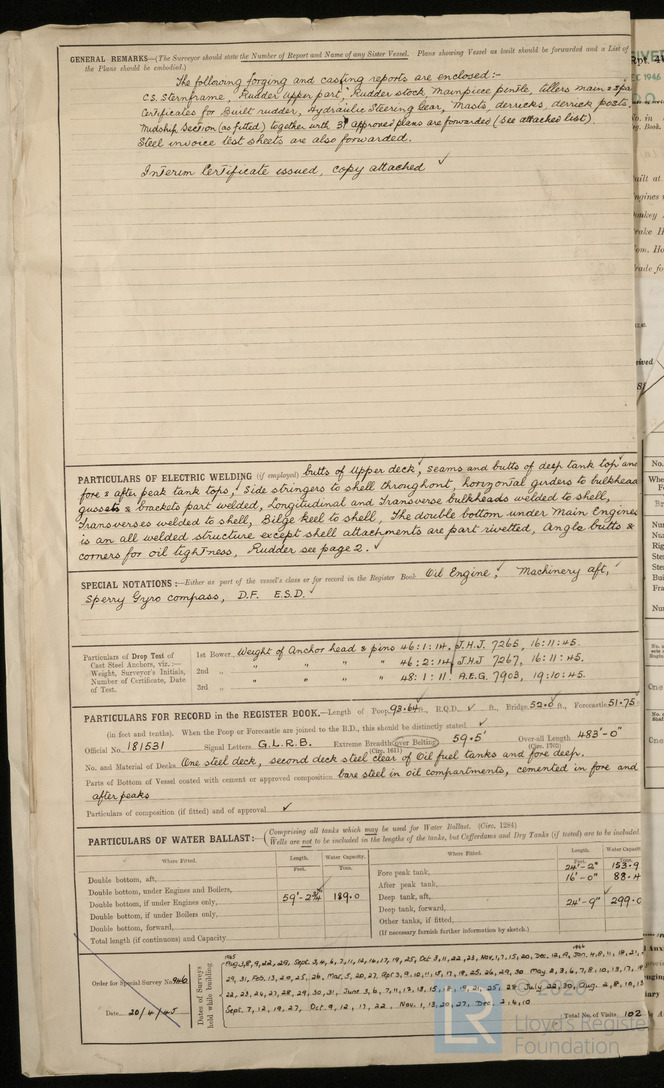 GENERAL REMARKS—(The Surveyor should state the Number of Report and Name of any Sister Vessel. Plans showing Vessel as built should be forwarded and a List of
the Plans should be embodied.)
The following forging and casting reports are enclosed:-
C.S. Sternframe, Rudder upper part, Rudder stock, Mainpiece pintle, tillers main & spa
Certificates for Built rudder, Hydraulic Steering Gear, Masts, derricks, derrick posts,
Midship Section (as fitted) together with 31 approved plans are forwarded (see attached list).
Steel invoice test sheets are also forwarded.
Interim Certificate issued, copy attached ✓
PARTICULARS OF ELECTRIC WELDING (if employed) butts of upper deck, seams and butts of deep tank top and
fore & after peak tank tops, side stringers to shell throughout, horizontal girders to bulkhead
gussets & brackets part welded, Longitudinal and Transverse bulkheads welded to shell,
Transverses welded to shell, Bilge keel to shell, The double bottom under Main Engines
is an all welded structure except shell attachments are part rivetted, Angle butts &
corners for oil tightness, Rudder see page 2. ✓
SPECIAL NOTATIONS:—Either as part of the vessel's class or for record in the Register Book Oil Engine, Machinery aft,
Sperry Gyro compass, D.F. E.S.D. ✓
Particulars of Drop Test of
Cast Steel Anchors, viz.:—
Weight, Surveyor's Initials,
Number of Certificate, Date
of Test.
1st Bower Weight of Anchor head & pins 46:1:14. J.H.J. 7265, 16:11:45.
2nd „ „ „ „ „ 46:2:14 J.H.J 7267, 16:11:45.
3rd „ „ „ „ „ 48:1:11. A.E.G. 7903, 19:10:45.
PARTICULARS FOR RECORD in the REGISTER BOOK.—Length of Poop 93.64 ft., R.Q.D. ✓ ft., Bridge 52.0 ft., Forecastle 51.75
(in feet and tenths). When the Poop or Forecastle are joined to the B.D., this should be distinctly stated ✓
Official No. 181531 Signal Letters G.L.R.B. Extreme Breadth over Belting (Circ. 1611) 59.5' Over-all Length (Circ. 1703) 483'-0"
No. and Material of Decks One steel deck, second deck steel clear of Oil fuel tanks and fore deep.
Parts of Bottom of Vessel coated with cement or approved composition bare steel in oil compartments, cemented in fore and
after peaks
Particulars of composition (if fitted) and of approval ✓
PARTICULARS OF WATER BALLAST:—(Comprising all tanks which may be used for Water Ballast. (Circ. 1284)
Wells are not to be included in the lengths of the tanks, but Cofferdams and Dry Tanks (if tested) are to be included.
Where Fitted. Length. Water Capacity. Where Fitted. Length. Water Capacit
Feet. Tons. Feet. Tons.
Double bottom, aft, Fore peak tank, 24'-2" 153.9
Double bottom, under Engines and Boilers, After peak tank, 16'-0" 88.4
Double bottom, if under Engines only, 59'-2¾" 189.0 Deep tank, aft, 24'-9" 299.0
Double bottom, if under Boilers only, Deep tank, forward,
Double bottom, forward, Other tanks, if fitted,
Total length (if continuous) and Capacity (If necessary furnish further information by sketch.)
Order for Special Survey No. 946
Date 20/4/45
Dates of Surveys held while building
1945
Aug. 3, 8, 9, 22, 29, Sept. 3, 4, 6, 7, 11, 12, 14, 17, 19, 25, Oct 3, 11, 22, 23, Nov. 1, 7, 15, 20, Dec. 12, 19, 1946 Jan. 4, 8, 11, 18, 21,
29, 31, Feb. 13, 20, 25, 26, Mar. 5, 20, 27, Apr 3, 9, 10, 11, 15, 17, 18, 25, 26, 29, 30 May 2, 3, 6, 7, 8, 10, 13, 17, 19
22, 23, 24, 27, 28, 29, 30, 31, June 3, 6, 7, 11, 17, 13, 15, 18, 19, 21, 25, 28 July 22, 30, Aug. 2, 8, 10, 13
Sept. 7, 12, 19, 27, Oct. 9, 12, 17, 22, Nov. 1, 13, 20, 27, Dec. 2, 4, 10
Total No. of Visits 102
© 2020
LR
Lloyd's Register
Foundation